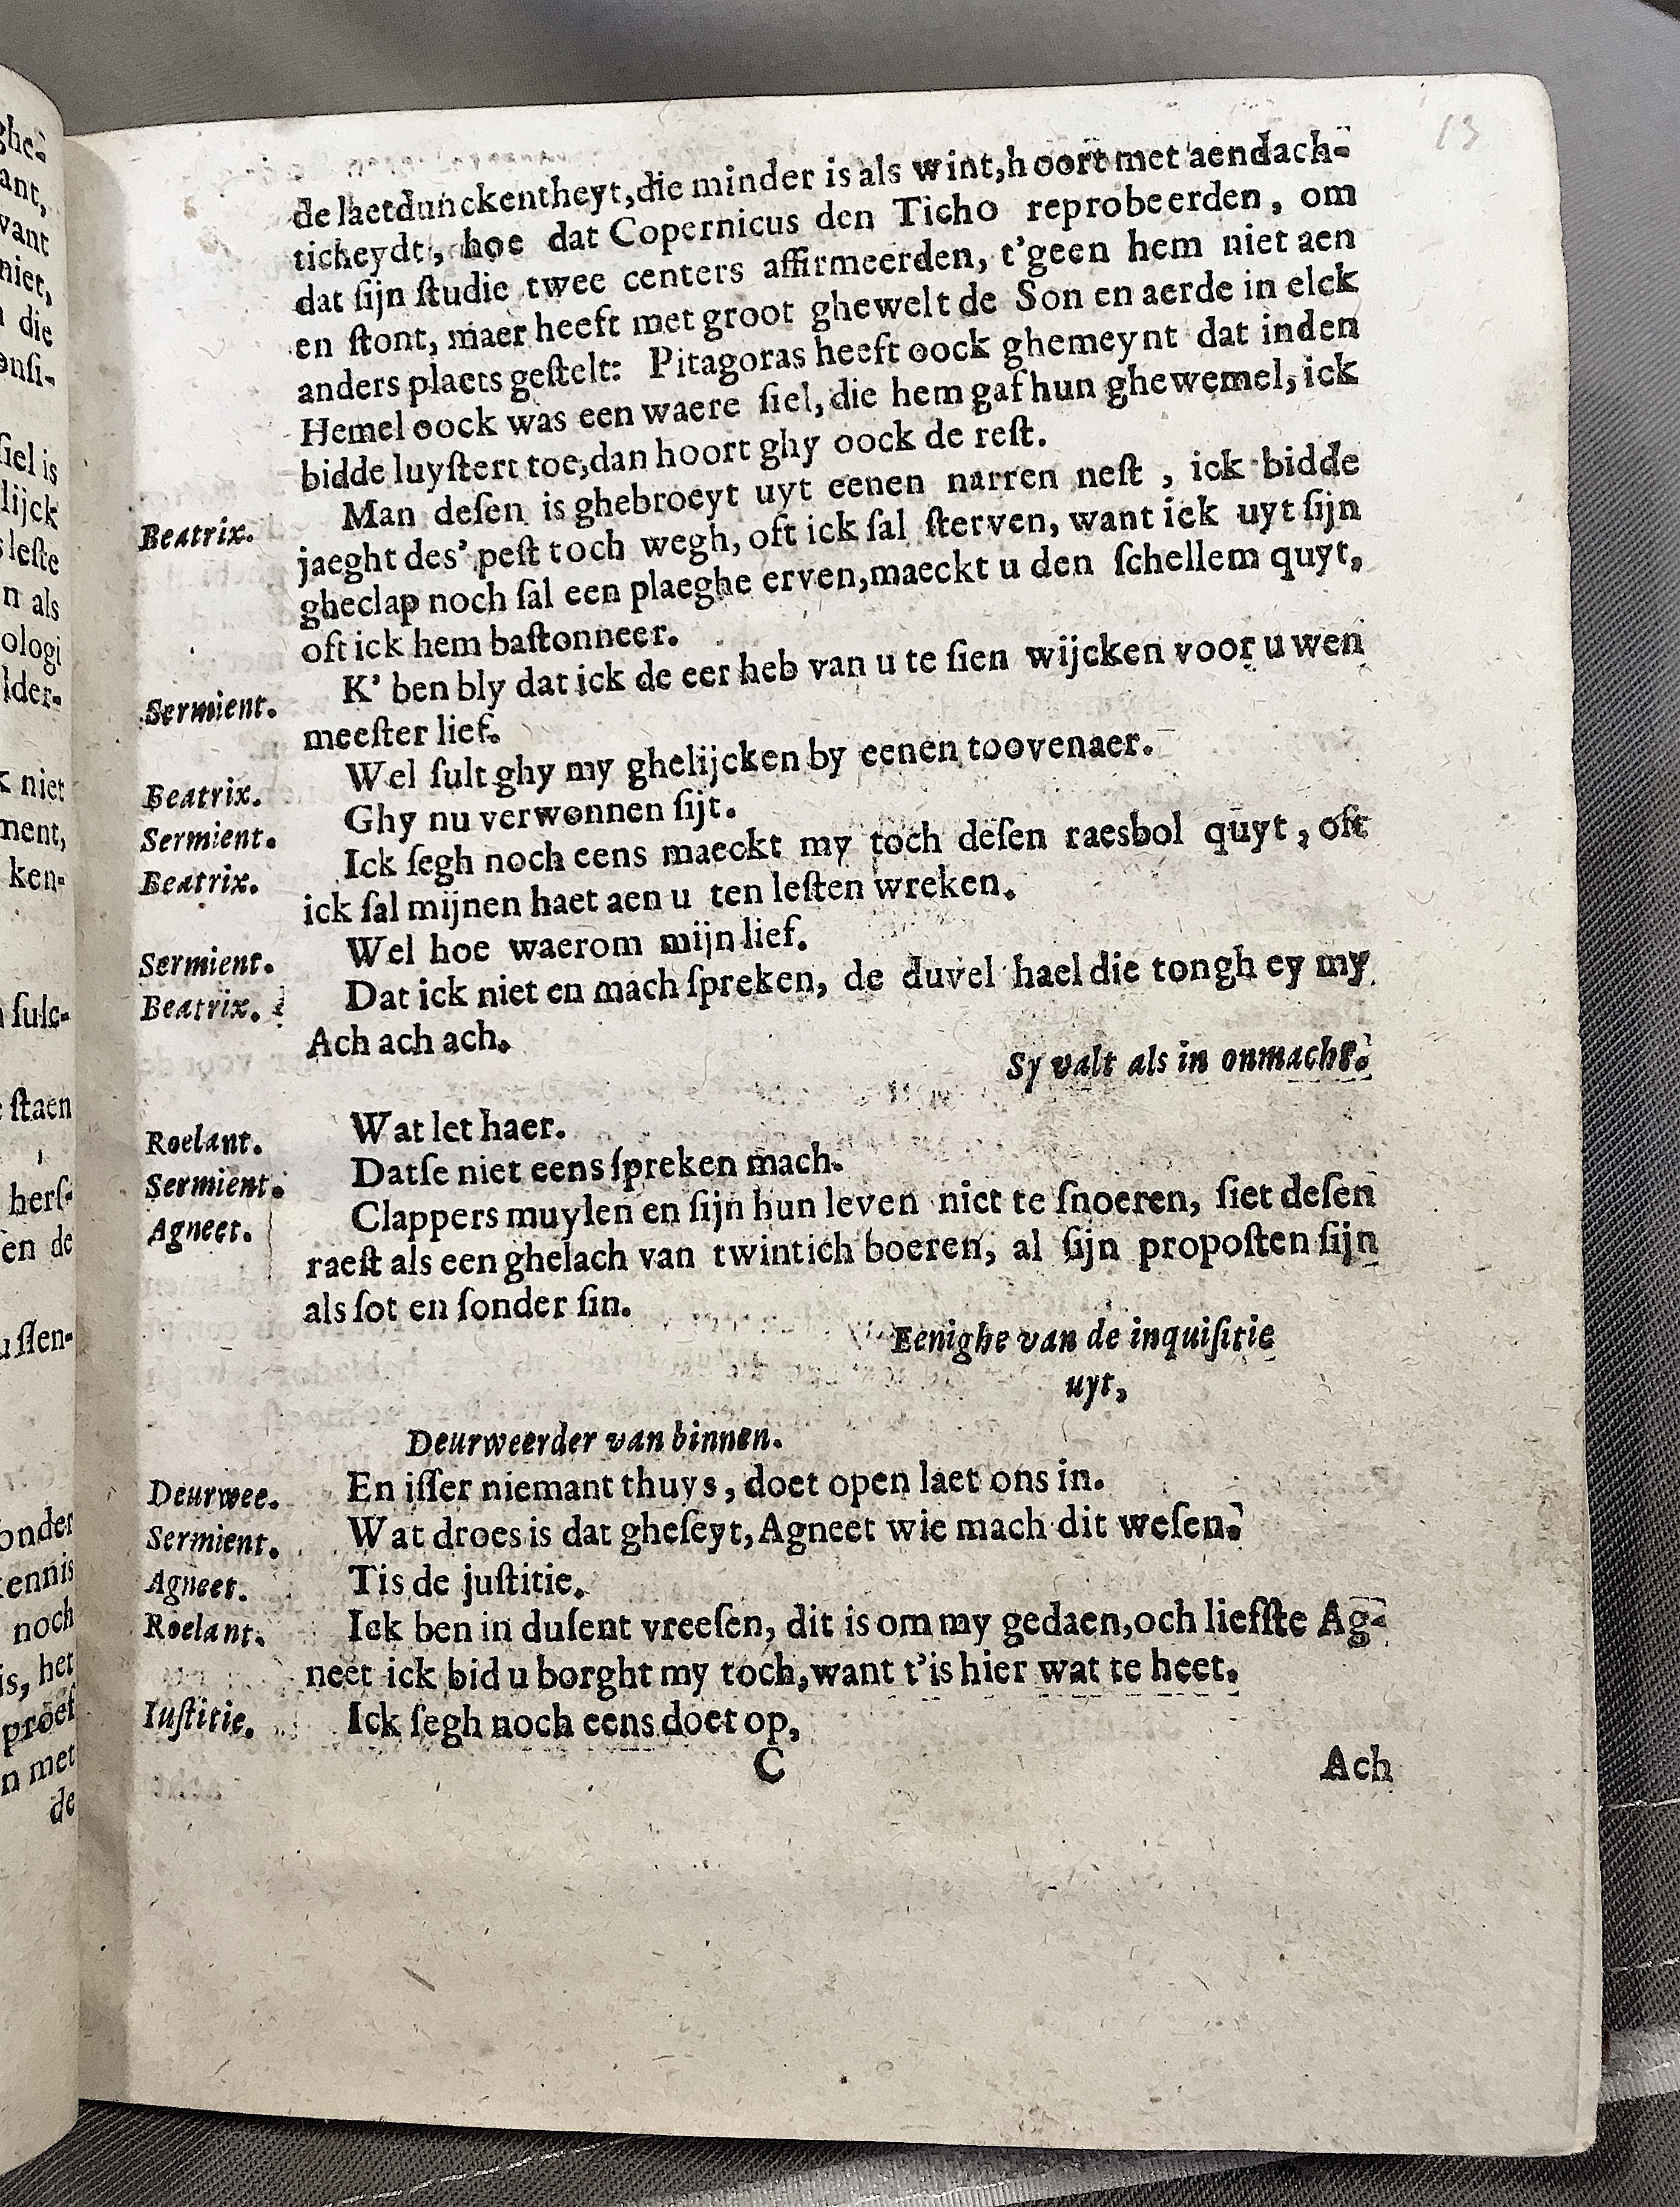 13
de laetdunckentheyt, die minder is als wint, hoort met aendach-
ticheydt, hoe dat Copernicus den Ticho reprobeerden, om
dat ſijn ſtudie twee centers affirmeerden, t'geen hem niet aen
en ſtont, maer heeft met groot ghewelt de Son en aerde in elck
anders plaets geſtelt: Pitagoras heeft oock ghemeynt dat inden
Hemel oock was een waere ſiel, die hem gaf hun ghewemel, ick
bidde luyſtert toe, dan hoort ghy oock de reſt.
Beatrix. Man deſen is ghebroeyt uyt eenen narren neſt , ick bidde
jaeght des' peſt toch wegh, oft ick ſal ſterven, want ick uyt ſijn
gheclap noch ſal een plaeghe erven, maeckt u den ſchellem quyt,
oft ick hem baſtonneer.
Sermient. K' ben bly dat ick de eer heb van u te ſien wijcken voor u wen
meeſter lief.
Beatrix. Wel ſult ghy my ghelijcken by eenen toovenaer.
Sermient. Ghy nu verwonnen ſijt.
Beatrix. Ick ſegh noch eens maeckt my toch deſen raesbol quyt , oft
ick ſal mijnen haet aen u ten leſten wreken.
Sermient. Wel hoe waerom mijn lief.
Beatrix. Dat ick niet en mach ſpreken, de duvel hael die tongh ey my
Ach ach ach.
Sy valt als in onmacht.
Roelant. Wat let haer.
Sermient. Datſe niet eens ſpreken mach.
Agneet. Clappers muylen en ſijn hun leven niet te ſnoeren, ſiet deſen
raeſt als een ghelach van twintich boeren, al ſijn propoſten ſijn
als ſot en ſonder ſin.
Eenighe van de inquiſitie
uyt,
Deurweerder van binnen.
Deurwee. En iſſer niemant thuys , doet open laet ons in.
Sermient. Wat droes is dat gheſeyt, Agneet wie mach dit weſen.
Agneet. Tis de juſtitie.
Roelant. Ick ben in duſent vreeſen, dit is om my gedaen, och liefſte Ag-
neet ick bid u borght my toch, want t'is hier wat te heet.
Iuſtitie. Ick ſegh noch eens doet op,
C Ach